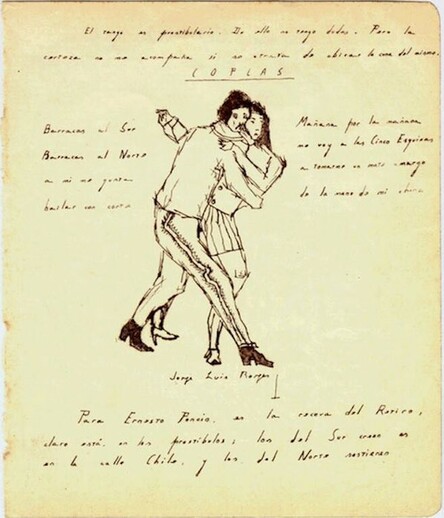 El tango es prostibulario. De ello no tengo dudas. Pero la
certeza no me acompaña si se trata de ubicar la cuna del mismo.
COPLAS
Barracas al Sur
Barracas al Norte
a mi me gusta
bailar con corte
Mañana por la mañana
me voy a las Cinco Esquinas
a tomarme un mate amargo
de la mano de mi china
Jorge Luis Borges
Para Ernesto Poncio, es la recova del Retiro,
claro está, en los prostibulos; los del Sur creen es
en la calle Chile, y los del Norte sostienen